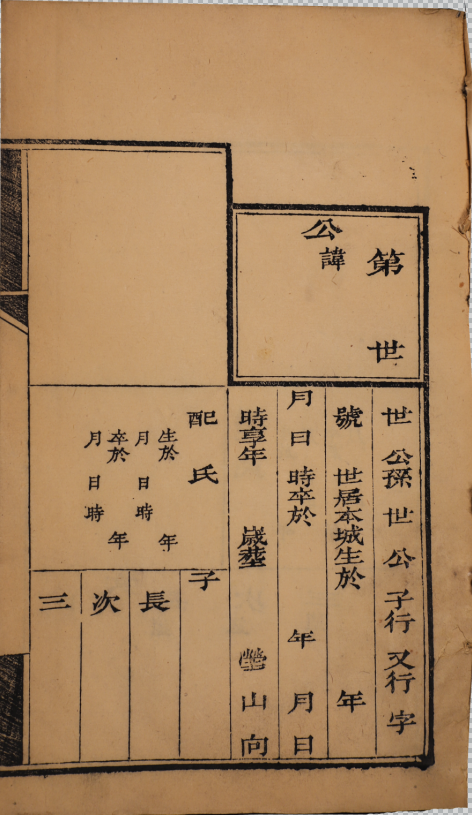 第 世
公
諱
世 公孫 世 公 子行 又行 字
號 世居本城生於 年
月 日 時卒於 年 月 日
時享年 歲塟 塋 山 向
配 氏
生於 年
月 日 時
卒於 年
月 日 時
子
長
次
三